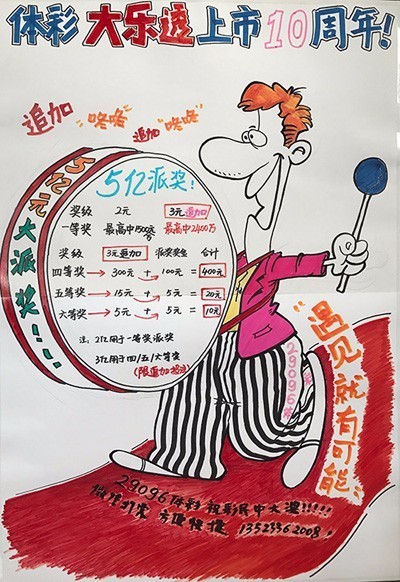 体彩大乐透上市10周年!
追加 "咚咚"
追加 "咚咚"
5亿元大派奖!!!!
5亿派奖!
奖级 2元 3元追加
一等奖 最高中1500万 最高中2400万
奖级 3元追加 派奖奖金 合计
四等奖 → 300元 + 100元 = 400元
五等奖 → 15元 + 5元 = 20元
六等奖 → 5元 + 5元 = 10元
注: 2亿用于一等奖派奖
3亿用于四/五/六等奖
(限追加投注)
"遇见就有可能"
29096体彩 祝彩民中大奖!!!!!
微信打票 方便快捷